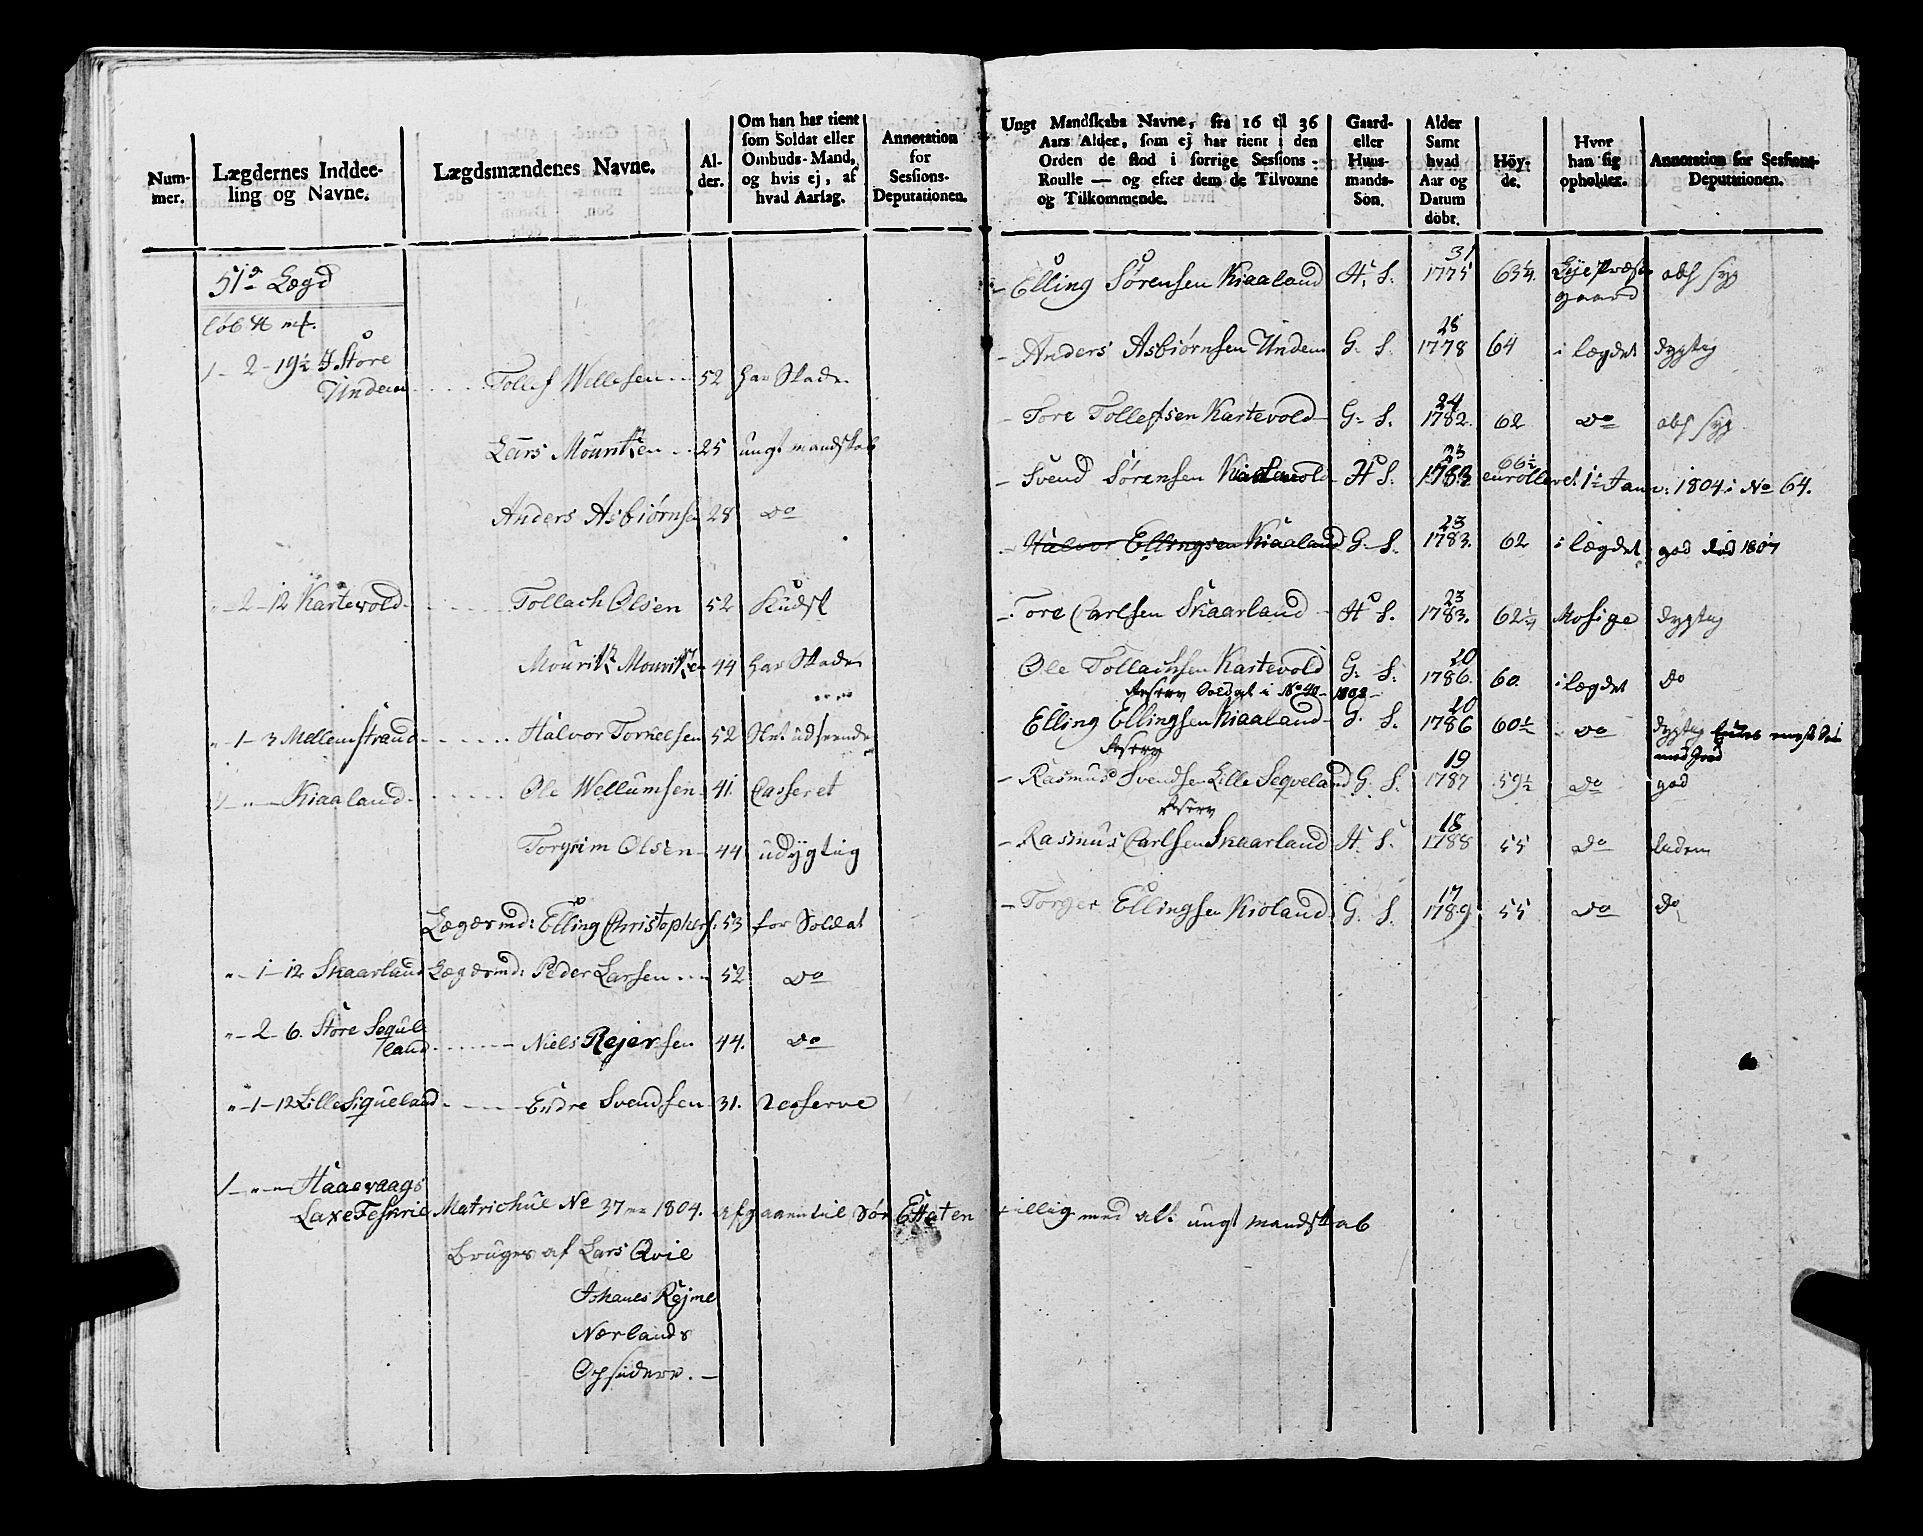 Num-
mer.
Lægdernes Inddee-
ling og Navne.
Lægdsmændenes Navne.
Al-
der.
Om han har tient
som Soldat eller
Ombuds-Mand,
og hvis ej, af
hvad Aarsag.
Annotation
for
Sessions-
Deputationen.
51de Lægd
Løb ℔ mk.
1 - 2 - 19½ Store
Undem - - - Tollef Willesen - - 52 har Skade
Lars Mouritzen - - 25 ungt mandskab
Anders Asbiørnsen 28 Do
" - 2 - 12 Kartevold - - - Tollach Olsen 52 Kudsk
Mouritz Mouritzen 44 har Skade
" - 1 - 3 Mellemstrand - - - Halvor Tormelsen 52 Slet udseende
1 - " - " Kiaaland - - - Ole Wellumsen 41. Casseret
Torgrim Olsen - 44 udygtig
Lægdsmd: Elling Christophers. 53 for Soldat
" - 1 - 12 Skaarland Lægdsmd: Peder Larsen - - - 52 Do
" - 2 - 6. Store Sequeland
- - - Niels Rejersen 44. Do
" - 1 - 12 Lille Siqueland - - - Endre Svendsen 31. Reserve
1 - " - " Haaevaags
Laxe Feskrie Matrichul No 37 1804. afgaaen til Sør Etteten tillig med alt ungt mandskab
Bruges af Lars Qvie
Johanes Rejme
Nærlands
Opsidere. -
Ungt Mandskabs Navne, fra 16 til 36
Aars Alder, som ej har tient i den
Orden de stod i forrige Sessions-
Roulle — og efter dem de Tilvoxne
og Tilkommende.
Gaard-
eller
Huus-
mands-
Søn.
Alder
Samt
hvad
Aar og
Datum
døbt.
Höy-
de.
Hvor
han sig
opholder.
Annotation for Sessions-
Deputationen.
31
- Elling Sørensen Kiaaland H. S. 1775 63¼ Eje Præste
gaard abs syg
28
- Anders Asbiørnsen Undem G. S. 1778 64 i lægdet dygtig
24
- Tore Tollefsen Kartevold G. S. 1782. 62 Do abs syg
23 66½
- Svend Sørensen H. S. 1783 enrolleret 1te Janv: 1804 i No 64.
23
- Halvor Ellingsen Kiaaland G. S. 1783. 62 i lægdet god død 1807
23
- Tore Carlsen Skaarland H. S. 1783. 62¼ Mosige dygtig
20
Ole Tollachsen Kartevold G. S. 1786. 60. i lægdet Do
Reserv Soldat i No 40 - 1808 -
20
Elling Ellingsen Kiaaland G. S. 1786 60½ Do dygtig
Reserv
19
- Rasmus Svendsen Lille Seqveland G. S. 1787 59½ Do god
Reserv
18
- Rasmus Carlsen Skaarland H. S. 1788 55 Do liden
17
- Torger Ellingsen Kioland G. S. 1789 55 Do Do